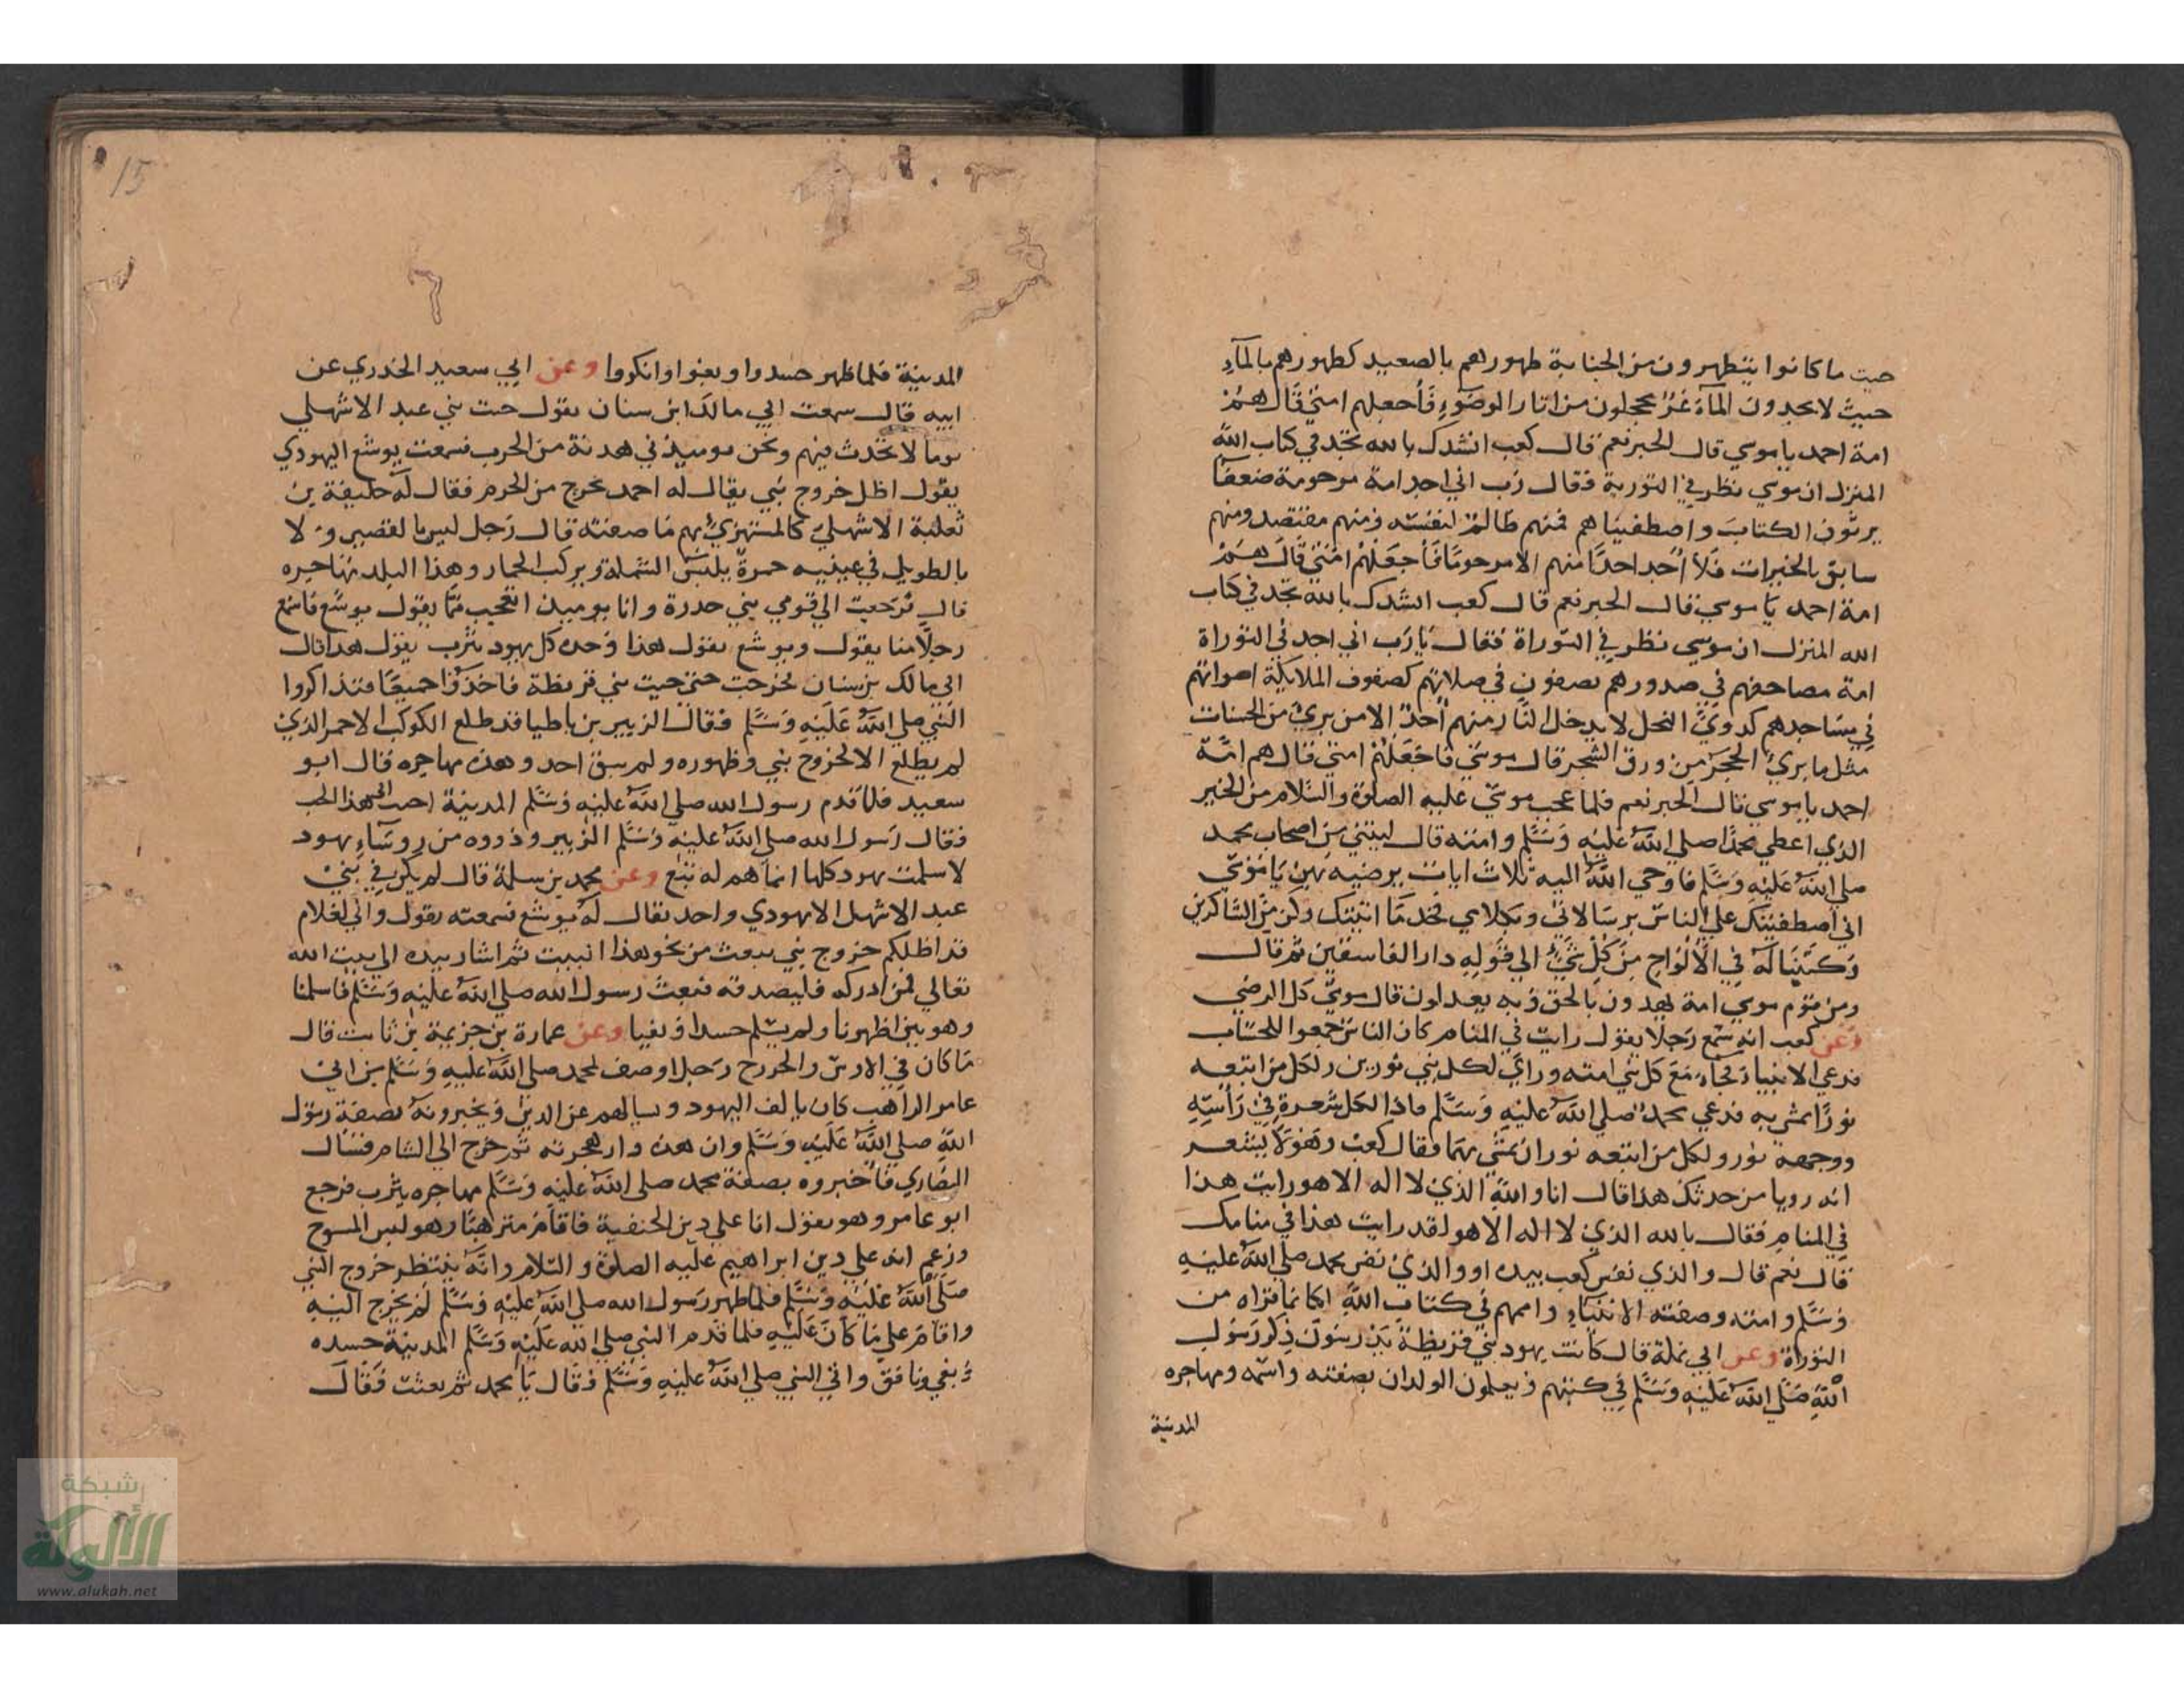 حيت ما كانوا يتطهرون من الجنابة طهورهم بالصعيد كطهورهم بالمآء
حيث لا يجدون المآء غر محجلون من اثار الوضوء فأجعلهم امتي قال هم
امة احمد يا موسي قال الحبر نعم قال كعب انشدك بالله تجد في كتاب الله
المنزل ان موسي نظر في التورية فقال رب اني اجد امة مرحومة ضعفا
يرثون الكتاب واصطفيناهم فمنهم ظالم لنفسه ومنهم مقتصد ومنهم
سابق بالخيرات فلا اجد احدا منهم الا مرحوما فأجعلهم امتي قال هم
امة احمد يا موسي قال الحبر نعم قال كعب انشدك بالله تجد في كتاب
الله المنزل ان موسي نظر في التوراة فقال يا رب اني اجد في التوراة
امة مصاحفهم في صدورهم يصفون في صلاتهم كصفوف الملايكة اصواتهم
في مساجدهم كدوي النحل لا يدخل النار منهم أحد الا من بري من الحسنات
مثل ما بري الحجر من ورق الشجر قال موسي فاجعلهم امتي قال هم امة
احمد يا موسي قال الحبر نعم فلما عجب موسي عليه الصلوة والسلام من الخير
الذي اعطي محمدا صلي الله عليه وسلم وامته قال ليتني من اصحاب محمد
صلي الله عليه وسلم فاوحي الله اليه ثلاث ايات يرضيه بهن يا موسي
اني اصطفيتك علي الناس برسالاتي وبكلامي فخذ ما اتيتك وكن من الشاكرين
وكتبنا له في الألواح من كل شئ الي قوله دار الفاسقين ثم قال
ومن قوم موسي امة يهدون بالحق وبه يعدلون قال موسي كل الرضي
وعن كعب انه سمع رجلا يقول رايت في المنام كان الناس جمعوا للحساب
فدعي الانبياء فجاء مع كل نبي امته وراي لكل نبي نورين ولكل من اتبعه
نورا يمشي به فدعي محمد صلي الله عليه وسلم فاذا لكل شعرة في رأسه
ووجهه نور ولكل من اتبعه نوران يمشي بهما فقال كعب وهو لا يشعر
انه رويا من حدثك هذا قال انا والله الذي لا اله الا هو رايت هذا
في المنام فقال بالله الذي لا اله الا هو لقد رايت هذا في منامك
قال نعم قال والذي نفس كعب بيده او والذي نفس محمد صلي الله عليه
وسلم وامته وصفته الانبياء واممهم في كتاب الله لكانما قراه من
التوراة وعن ابي نملة قال كانت يهود بني قريظة يدرسون ذكر رسول
الله صلي الله عليه وسلم في كتبهم ويعلمون الولدان بصفته واسمه ومهاجره
المدينة
15
٦
المدينة فلما ظهر حسدوا وبغوا وانكروا وعن ابي سعيد الخدري عن
ابيه قال سمعت ابي مالك ابن سنان يقول جيت بني عبد الاشهلي
يوما لاتحدث فيهم ونحن يوميذ في هدنة من الحرب فسمعت يوشع اليهودي
يقول اظل خروج نبي يقال له احمد يخرج من الحرم فقال له خليفة بن
ثعلبة الاشهلي كالمستهزئ بهم ما صفته قال رجل ليس بالقصير ولا
بالطويل في عينيه حمرة يلبس الشملة ويركب الحمار وهذا البلد مهاجره
قال فرجعت الي قومي بني حدرة وانا يوميذ اتعجب مما يقول يوشع فاسمع
رجلا منا يقول ويوشع يقول هذا وحده كل يهود يثرب يقول هذا قال
ابي مالك بن سنان فخرجت حتي جيت بني قريظة فاخذوا جميعا فتذاكروا
النبي صلي الله عليه وسلم فقال الزبير بن باطيا قد طلع الكوكب الاحمر الذي
لم يطلع الا لخروج نبي وظهوره ولم يبق احد وهذه مهاجره قال ابو
سعيد فلما قدم رسول الله صلي الله عليه وسلم المدينة اخبره ابي هذا الخبر
فقال رسول الله صلي الله عليه وسلم الزبير وذووه من روسآء يهود
لاسلمت يهود كلها انما هم له تبع وعن محمد بن سلمة قال لم يكن في بني
عبد الاشهل الا يهودي واحد يقال له يوشع فسمعته يقول واني لغلام
قد اظلكم خروج نبي يبعث من نحو هذا البيت ثم اشار بيده الي بيت الله
تعالي فمن ادركه فليصدقه فبعث رسول الله صلي الله عليه وسلم فاسلمنا
وهو بين اظهرنا ولم يسلم حسدا وبغيا وعن عمارة بن خزيمة بن ثابت قال
ما كان في الاوس والخزرج رجل اوصف لمحمد صلي الله عليه وسلم من ابي
عامر الراهب كان يالف اليهود ويسالهم عن الدين ويخبرونه بصفة رسول
الله صلي الله عليه وسلم وان هذه دار هجرته ثم خرج الي الشام فسال
النصاري فأخبروه بصفة محمد صلي الله عليه وسلم مهاجره يثرب فرجع
ابو عامر وهو يقول انا علي دين الحنفية فاقام مترهبا وهو لبس المسوح
وزعم انه علي دين ابراهيم عليه الصلوة والسلام وانه ينتظر خروج النبي
صلي الله عليه وسلم فلما ظهر رسول الله صلي الله عليه وسلم لم يخرج اليه
واقام علي ما كان عليه فلما قدم النبي صلي الله عليه وسلم المدينة حسده
وبغي ونافق واتي النبي صلي الله عليه وسلم فقال يا محمد ثم بعثت فقال
شبكة
الألوكة
www.alukah.net